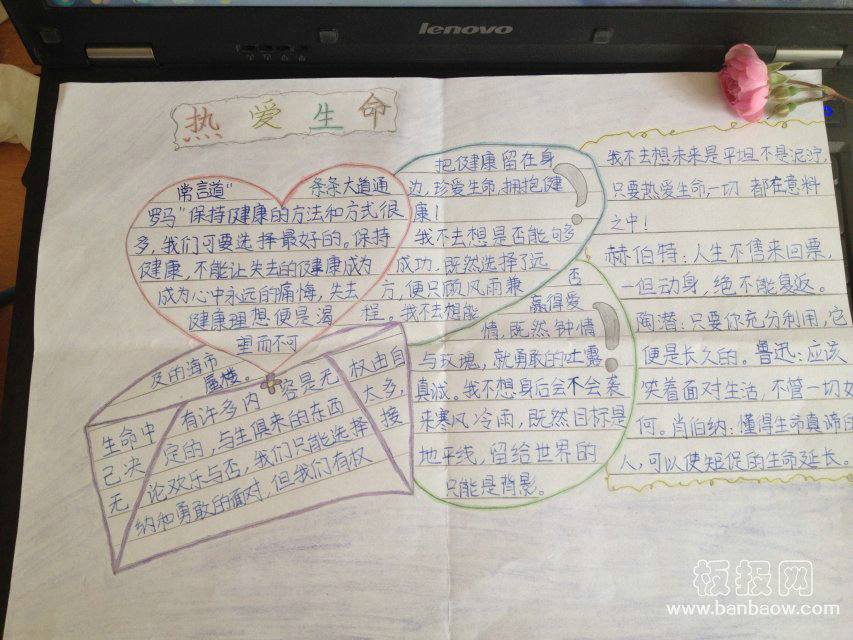 lenovo
热爱生命
常言道"条条大道通
罗马"保持健康的方法和方式很
多,我们可要选择最好的。保持
健康,不能让失去的健康成为
成为心中永远的痛悔,失去
健康理想便是渴
望而不可
及的海市
蜃楼。
生命中有许多内容是无权由自
己决定的,与生俱来的东西太多,
无论欢乐与否,我们只能选择接
纳和勇敢的面对,但我们有权
把健康留在身
边,珍爱生命,拥抱健
康!
我不去想是否能够多
成功.既然选择了远
方,便只顾风雨兼
程。我不去想能
否
赢得爱
情,既然钟情
与玫瑰,就勇敢的吐露
真诚。我不想身后会不会袭
来寒风冷雨,既然目标是
地平线,留给世界的
只能是背影。
我不去想未来是平坦不是泥泞,
只要热爱生命,一切 都在意料
之中!
赫伯特:人生不售来回票,
一但动身,绝不能复返。
陶潜:只要你充分利用,它
便是长久的。鲁迅:应该
笑着面对生活,不管一切如
何。肖伯纳:懂得生命真谛的
人,可以使短促的生命延长。
板报网
www.banbaow.com